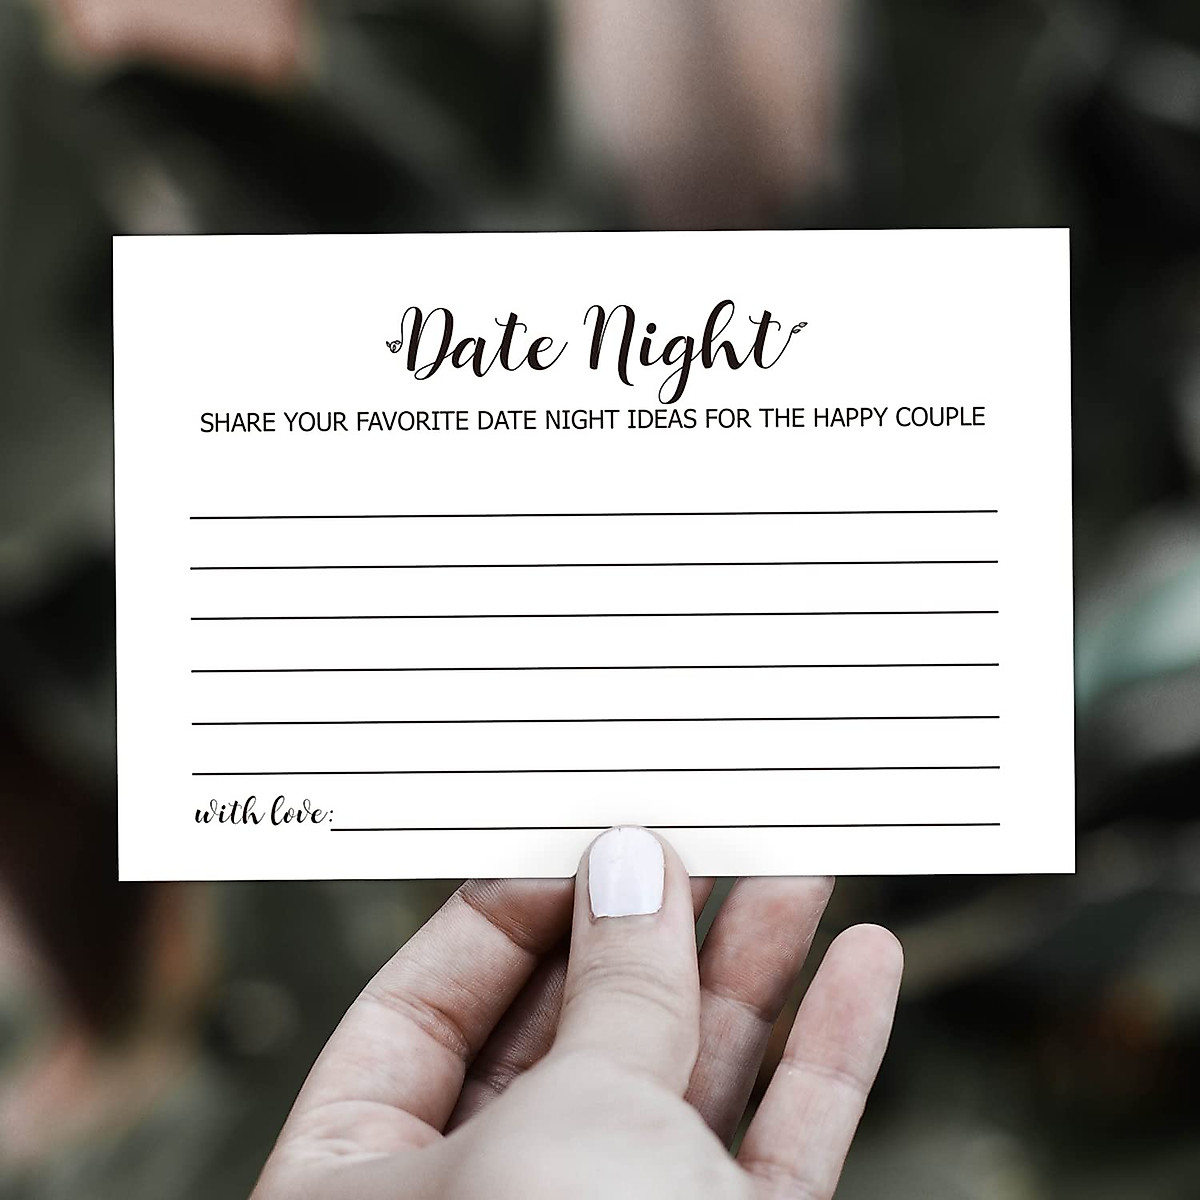 Date Night
SHARE YOUR FAVORITE DATE NIGHT IDEAS FOR THE HAPPY COUPLE
with love: